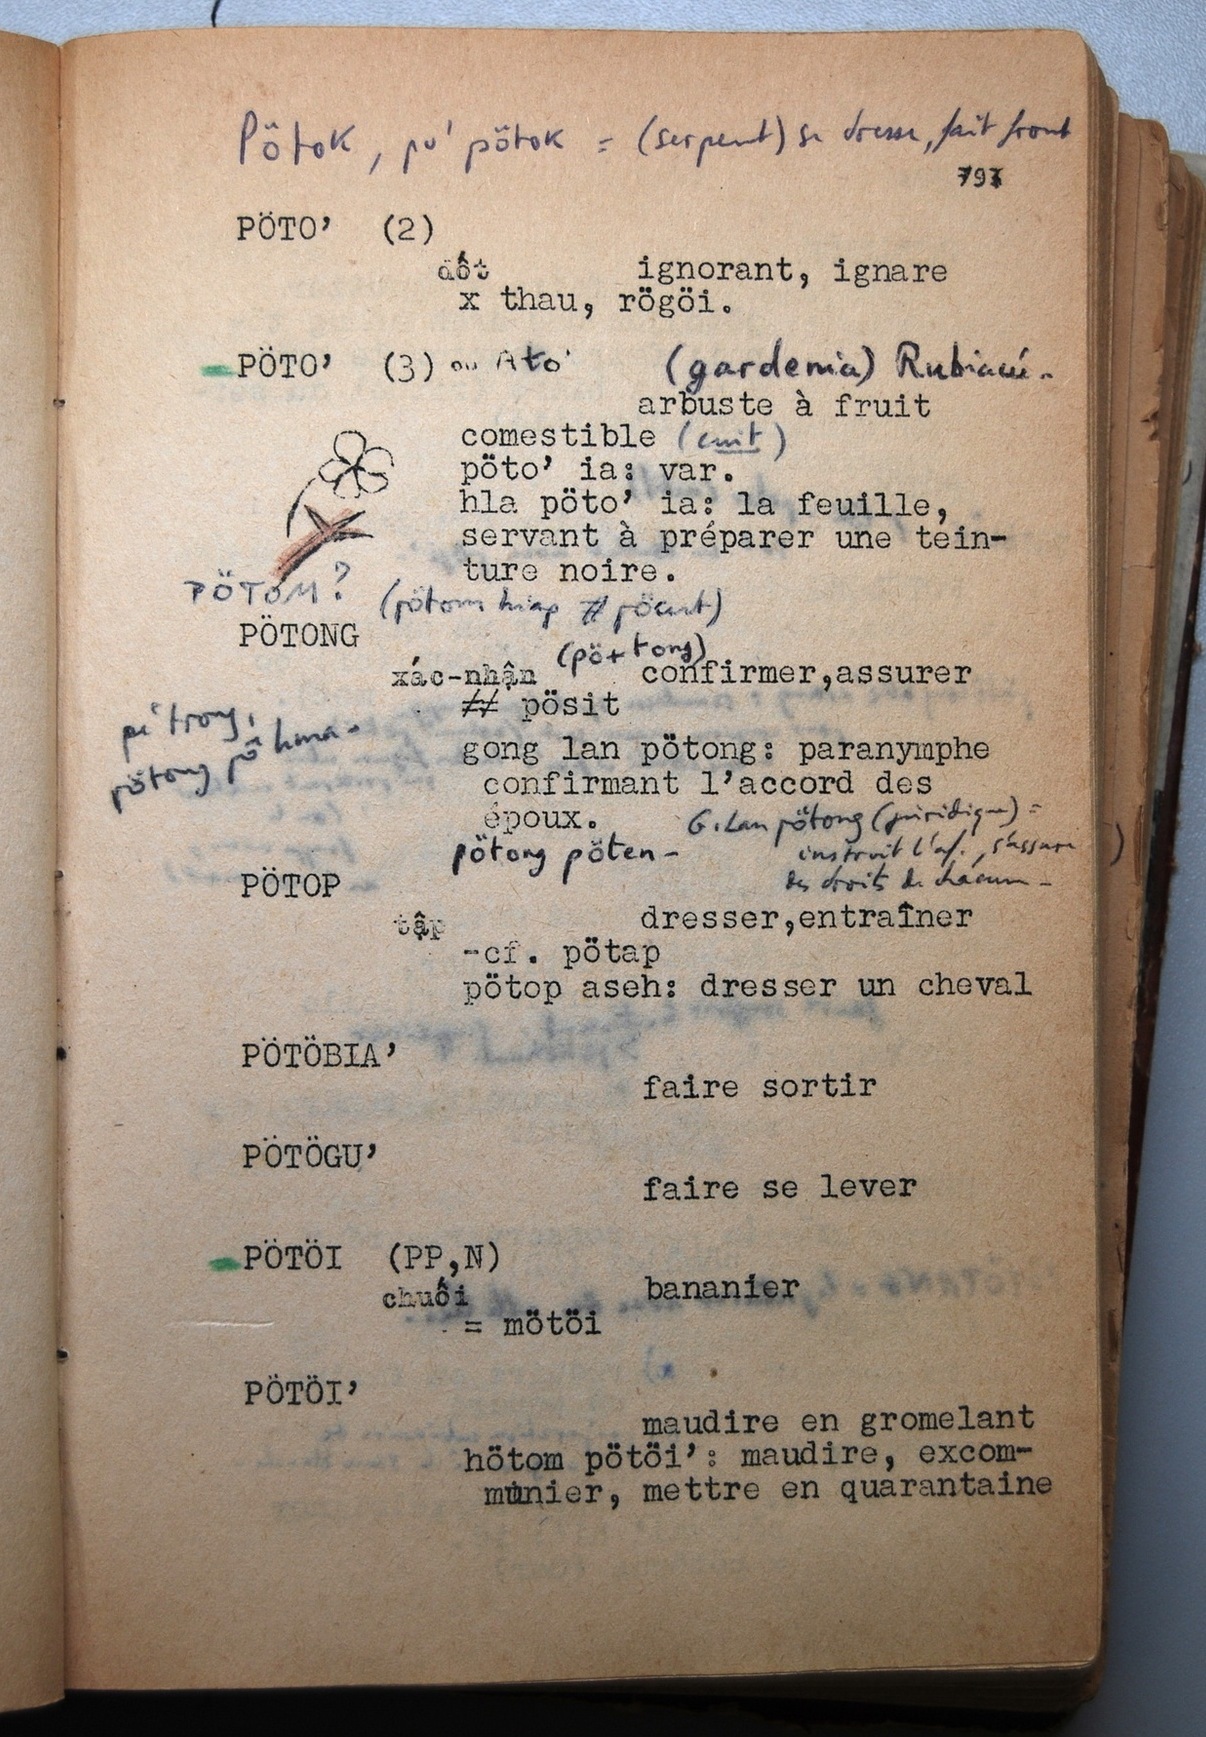 Pötok, pơ' pötok = (serpent) se dresse, fait front
797
PÖTO' (2)
dốt ignorant, ignare
x thau, rögöi.
PÖTO' (3) ou Ato' (gardenia) Rubiacé.
arbuste à fruit
comestible (cuit)
pöto' ia: var.
hla pöto' ia: la feuille,
servant à préparer une tein-
ture noire.
PÖTOM? (pötom hiap # )
PÖTONG
(pö+tong)
xác-nhận confirmer,assurer
# pösit
gong lan pötong: paranymphe
confirmant l'accord des
époux.
pötong pö hma -
G. lan pötong (juridique) =
instruit l'af., s'assure
des droits de chacun -
pötong pöten -
PÖTOP
tập dresser,entraîner
-cf. pötap
pötop aseh: dresser un cheval
PÖTÖBIA'
faire sortir
PÖTÖGU'
faire se lever
PÖTÖI (PP,N)
chuối bananier
= mötöi
PÖTÖI'
maudire en gromelant
hötom pötöi': maudire, excom-
munier, mettre en quarantaine